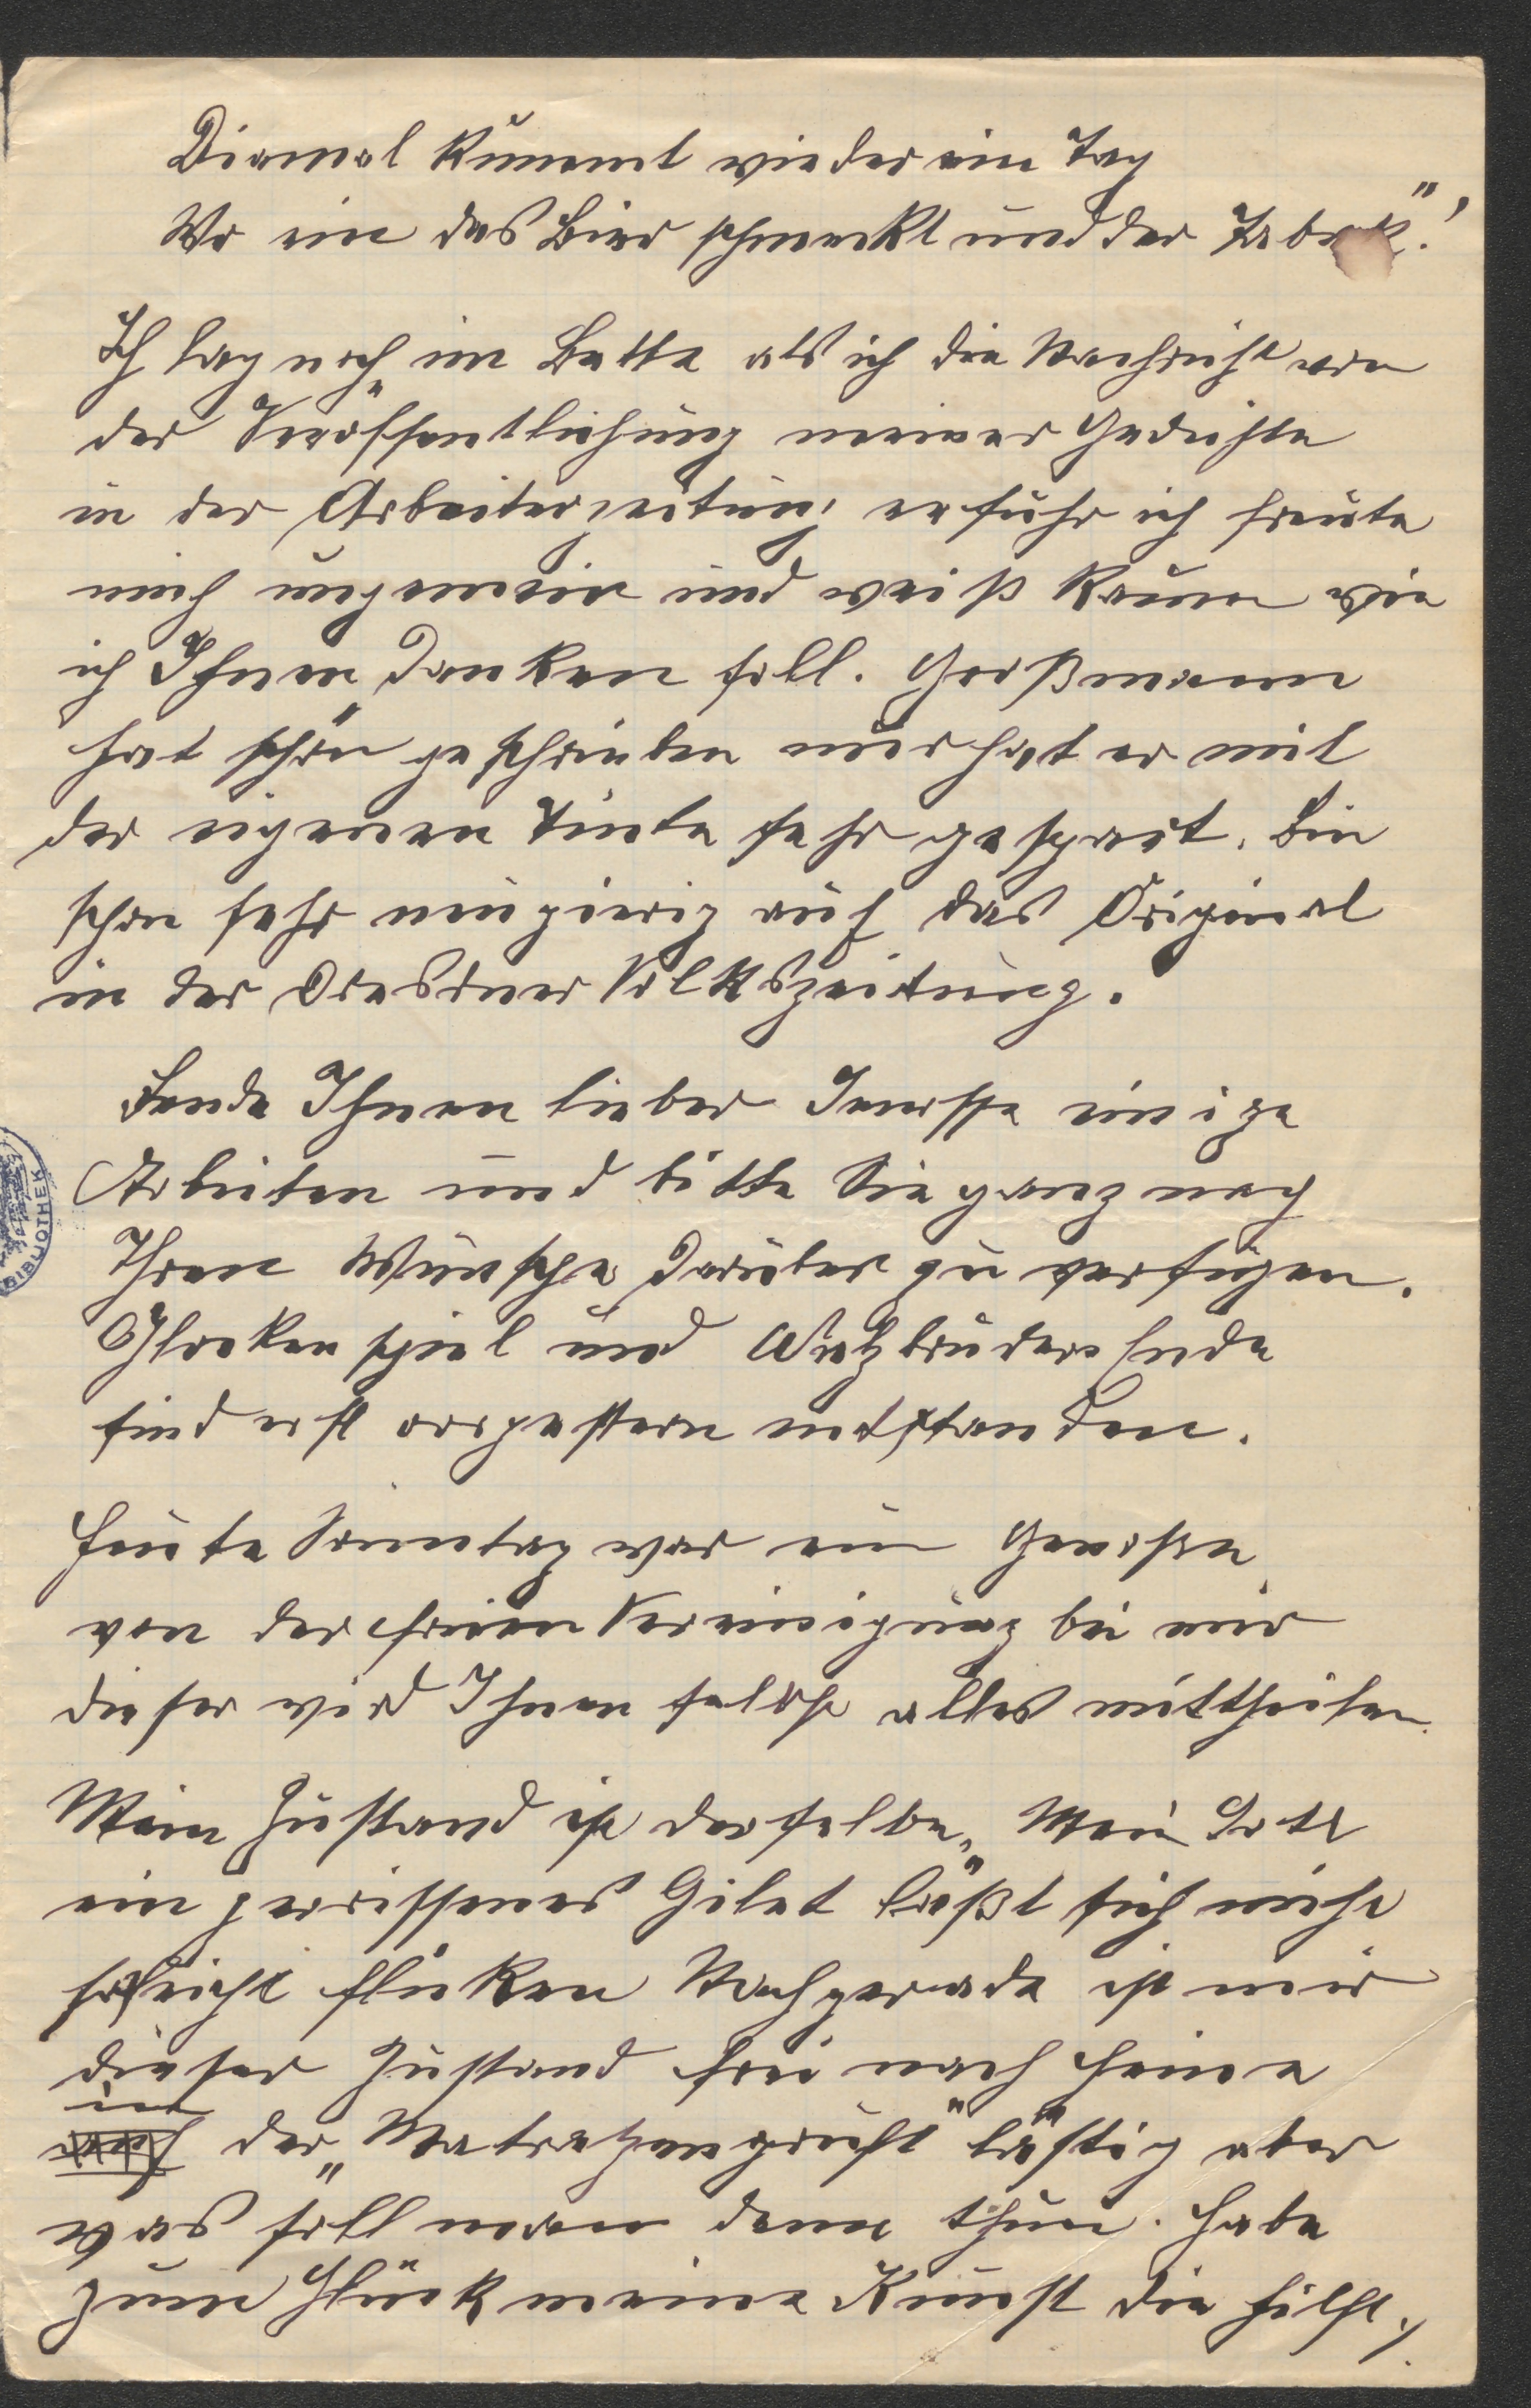 Diamal kummt wieder ein Tag
Wo ein das Bier schmeckt und der Tabak"!
Ich lag noch im Bette als ich die Nachricht von
der Veröffentlichung meiner Gedichte
in der Arbeiterzeitung erfuhr ich freute
mich ungemein und weiß kaum wie
ich Ihnen danken soll. Großmann
hat schön geschrieben nur hat er mit
der eigenen Tinte sehr gespart. Bin
schon sehr neugierig auf das Original
in der Dresdner Volkszeitung.
Sende Ihnen lieber Genosse einige
Arbeiten und bitte Sie ganz nach
Ihren Wunsche darüber zu verfügen.
Glockenspiel und Walzbruders Ende
sind erst vorgestern entstanden.
Heute Sonntag war ein Genosse
von der freien Vereinigung bei mir
dieser wird Ihnen selbst alles mittheilen.
Mein Zustand ist derselbe, Mein Gott
ein zerrissenes Gilet läßt sich nicht
so leicht flicken Nachgerade ist mir
dieser Zustand frei nach Heine
in
der „Matratzengruft" lästig aber
was soll man denn thun. Habe
zum Glück meine Kunst die hilft.
BIBLIOTHEK